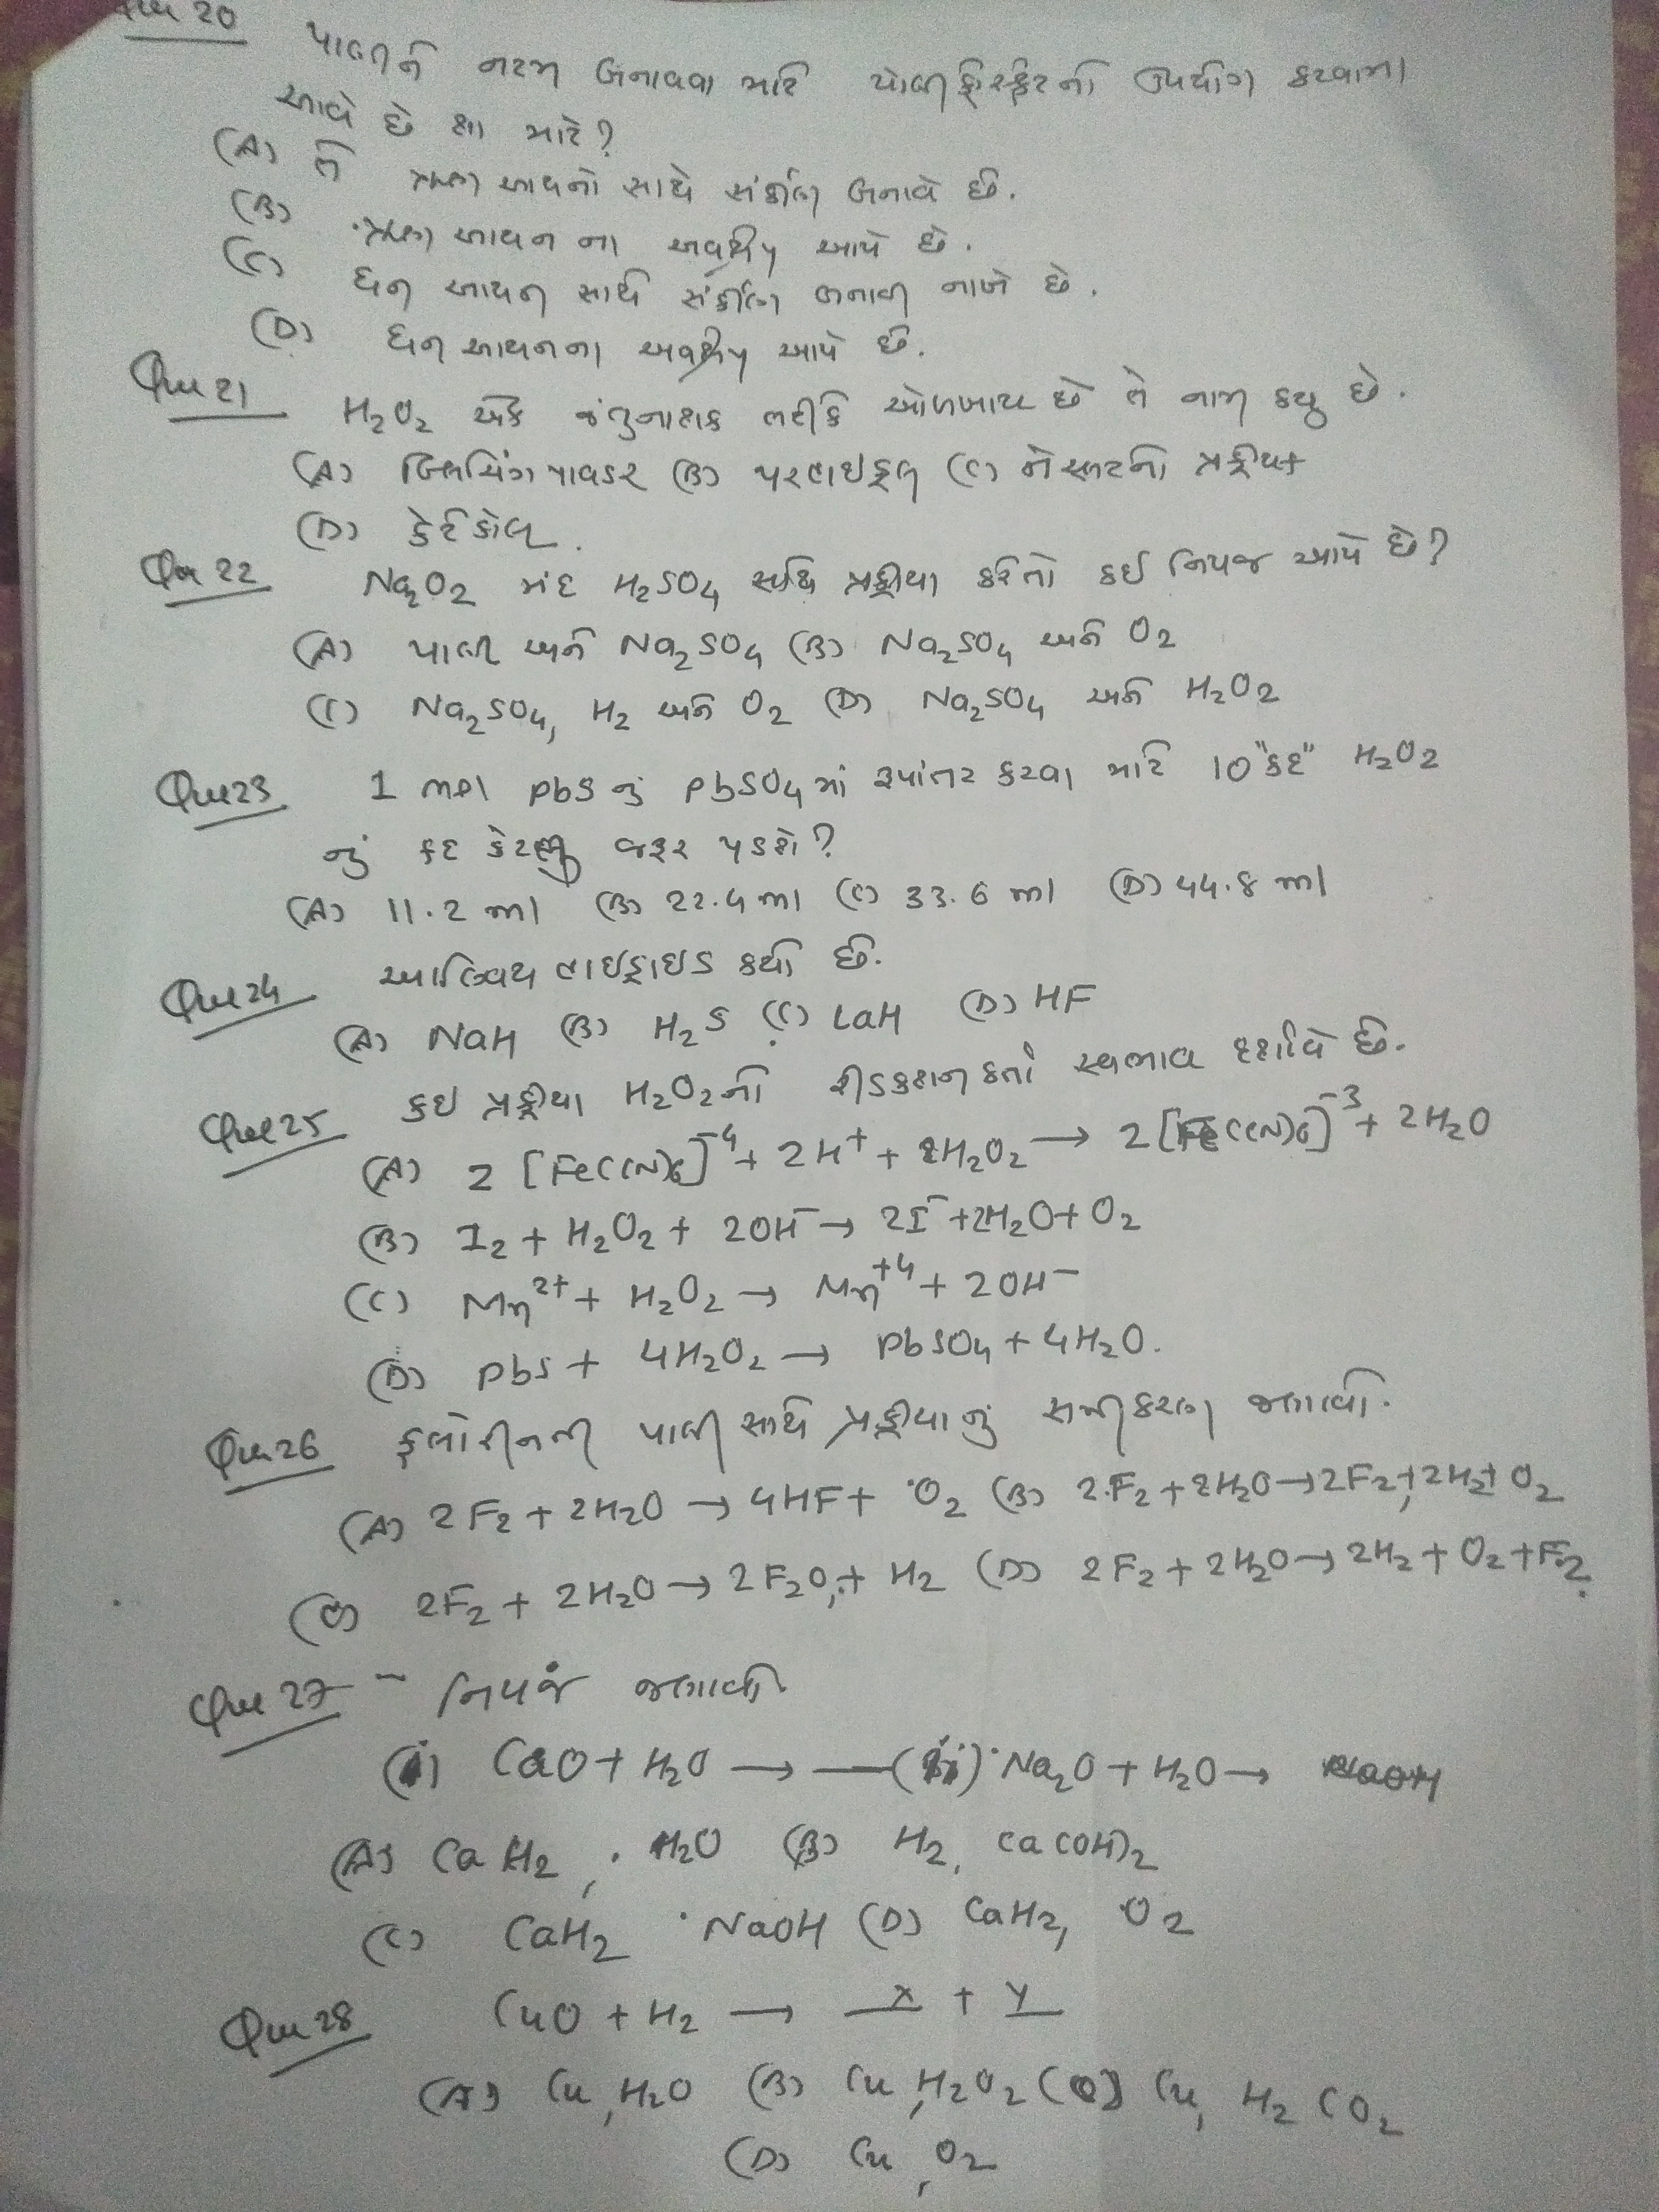 Que 20 પાણીને નરમ બનાવવા માટે પોલીફોસ્ફેટનો ઉપયોગ કરવામાં
આવે છે શા માટે?
(A) તે ઋણ આયનો સાથે સંકીર્ણ બનાવે છે.
(B) ઋણ આયન ના અવક્ષેપ આપે છે.
(C) ધન આયન સાથે સંકીર્ણ બનાવી નાખે છે.
(D) ધન આયનના અવક્ષેપ આપે છે.
Que 21 H2O2 એક જંતુનાશક તરીકે ઓળખાય છે તે નામ કયુ છે.
(A) બ્લિચિંગ પાવડર (B) પરહાઇડ્રોલ (C) નેસ્લરનો પ્રક્રીયક
(D) કેટેકોલ.
Que 22 Na2O2 મંદ H2SO4 સાથે પ્રક્રીયા કરેતો કઇ નિપજ આપે છે?
(A) પાણી અને Na2SO4 (B) Na2SO4 અને O2
(C) Na2SO4, H2 અને O2 (D) Na2SO4 અને H2O2
Que 23 1 mol PbS નું PbSO4 માં રૂપાંતર કરવા માટે 10 "કદ" H2O2
નું કદ કેટલું જરૂર પડશે?
(A) 11.2 ml (B) 22.4 ml (C) 33.6 ml (D) 44.8 ml
Que 24 આણ્વિય હાઇડ્રાઇડ કયો છે.
(A) NaH (B) H2S (C) LaH (D) HF
Que 25 કઇ પ્રક્રીયા H2O2નો રીડક્શનકર્તા સ્વભાવ દર્શાવે છે.
(A) 2 [Fe(CN)6]^-4 + 2H^+ + H2O2 → 2 [Fe(CN)6]^-3 + 2H2O
(B) I2 + H2O2 + 2OH^- → 2I^- + 2H2O + O2
(C) Mn^2+ + H2O2 → Mn^+4 + 2OH^-
(D) PbS + 4H2O2 → PbSO4 + 4H2O.
Que 26 ફ્લોરીનની પાણી સાથે પ્રક્રીયાનું સમીકરણ જણાવો.
(A) 2F2 + 2H2O → 4HF + O2 (B) 2F2 + 2H2O → 2F2 + 2H2 + O2
(C) 2F2 + 2H2O → 2F2O + H2 (D) 2F2 + 2H2O → 2H2 + O2 + F2.
Que 27 - નિપજ જણાવો
(i) CaO + H2O → — (ii) Na2O + H2O →
(A) CaH2, H2O (B) H2, Ca(OH)2
(C) CaH2 NaOH (D) CaH2, O2
Que 28 CuO + H2 → X + Y
(A) Cu, H2O (B) Cu, H2O2 (C) Cu, H2CO2
(D) Cu, O2